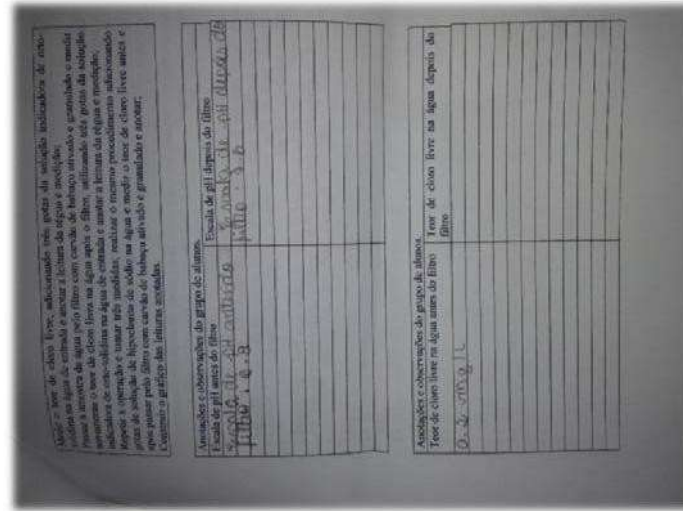 Medir o teor de cloro livre, adicionando três gotas da solução indicadora de orto-
tolidina na água de entrada e anotar a leitura da régua e medição;
Passar a amostra da água pelo filtro com carvão de babaçu ativado e granulado e medir
novamente o teor de cloro livre na água após o filtro, utilizando três gotas da solução
indicadora de orto-tolidina na água de entrada e anotar a leitura da régua e medição;
Repetir a operação e tomar três medidas; realizar o mesmo procedimento adicionando
gotas de solução de hipoclorito de sódio na água e medir o teor de cloro livre antes e
após passar pelo filtro com carvão de babaçu ativado e granulado e anotar;
Construir o gráfico das leituras anotadas.
Anotações e observações do grupo de alunos.
Escala de pH antes do filtro
Escala de pH depois do filtro
Escala de pH antes do
filtro:
Escala de pH depois do
filtro:
Anotações e observações do grupo de alunos.
Teor de cloro livre na água antes do filtro
Teor de cloro livre na água depois do
filtro
mg/L